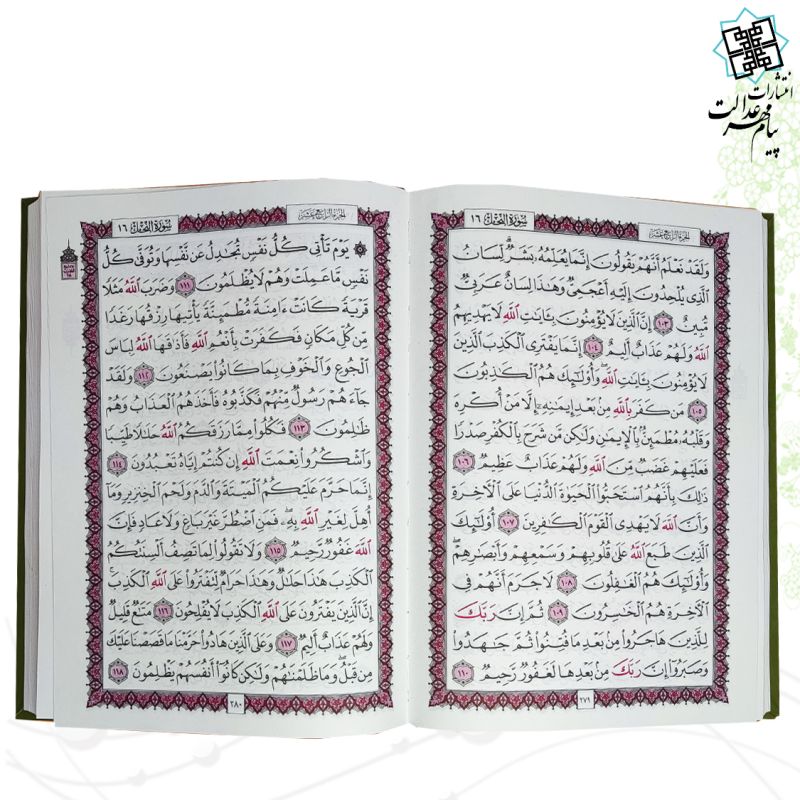 انتشارات
پیام مهر عدالت
الجزء الرابع عشر
سورة النحل ١٦
وَلَقَدْ نَعْلَمُ أَنَّهُمْ يَقُولُونَ إِنَّمَا يُعَلِّمُهُ بَشَرٌ لِسَانُ
الَّذِي يُلْحِدُونَ إِلَيْهِ أَعْجَمِيٌّ وَهٰذَا لِسَانٌ عَرَبِيٌّ
مُبِينٌ ١٠٣ إِنَّ الَّذِينَ لَا يُؤْمِنُونَ بِـَٔايَاتِ اللّٰهِ لَا يَهْدِيهِمُ
اللّٰهُ وَلَهُمْ عَذَابٌ أَلِيمٌ ١٠٤ إِنَّمَا يَفْتَرِي الْكَذِبَ الَّذِينَ
لَا يُؤْمِنُونَ بِـَٔايَاتِ اللّٰهِ وَأُولٰئِكَ هُمُ الْكَاذِبُونَ
١٠٥ مَنْ كَفَرَ بِاللّٰهِ مِنْ بَعْدِ إِيمَانِهِ إِلَّا مَنْ أُكْرِهَ
وَقَلْبُهُ مُطْمَئِنٌّ بِالْإِيمَانِ وَلٰكِنْ مَنْ شَرَحَ بِالْكُفْرِ صَدْرًا
فَعَلَيْهِمْ غَضَبٌ مِنَ اللّٰهِ وَلَهُمْ عَذَابٌ عَظِيمٌ ١٠٦
ذٰلِكَ بِأَنَّهُمُ اسْتَحَبُّوا الْحَيٰوةَ الدُّنْيَا عَلَى الْآخِرَةِ
وَأَنَّ اللّٰهَ لَا يَهْدِي الْقَوْمَ الْكَافِرِينَ ١٠٧ أُولٰئِكَ
الَّذِينَ طَبَعَ اللّٰهُ عَلَىٰ قُلُوبِهِمْ وَسَمْعِهِمْ وَأَبْصَارِهِمْ
وَأُولٰئِكَ هُمُ الْغَافِلُونَ ١٠٨ لَا جَرَمَ أَنَّهُمْ فِي
الْآخِرَةِ هُمُ الْخَاسِرُونَ ١٠٩ ثُمَّ إِنَّ رَبَّكَ
لِلَّذِينَ هَاجَرُوا مِنْ بَعْدِ مَا فُتِنُوا ثُمَّ جَاهَدُوا
وَصَبَرُوا إِنَّ رَبَّكَ مِنْ بَعْدِهَا لَغَفُورٌ رَحِيمٌ ١١٠
٢٧٩
الجزء الرابع عشر
سورة النحل ١٦
يَوْمَ تَأْتِي كُلُّ نَفْسٍ تُجَادِلُ عَنْ نَفْسِهَا وَتُوَفَّىٰ كُلُّ
نَفْسٍ مَا عَمِلَتْ وَهُمْ لَا يُظْلَمُونَ ١١١ وَضَرَبَ اللّٰهُ مَثَلًا
قَرْيَةً كَانَتْ ءَامِنَةً مُطْمَئِنَّةً يَأْتِيهَا رِزْقُهَا رَغَدًا
مِنْ كُلِّ مَكَانٍ فَكَفَرَتْ بِأَنْعُمِ اللّٰهِ فَأَذَاقَهَا اللّٰهُ لِبَاسَ
الْجُوعِ وَالْخَوْفِ بِمَا كَانُوا يَصْنَعُونَ ١١٢ وَلَقَدْ
جَاءَهُمْ رَسُولٌ مِنْهُمْ فَكَذَّبُوهُ فَأَخَذَهُمُ الْعَذَابُ وَهُمْ
ظَالِمُونَ ١١٣ فَكُلُوا مِمَّا رَزَقَكُمُ اللّٰهُ حَلَالًا طَيِّبًا
وَاشْكُرُوا نِعْمَتَ اللّٰهِ إِنْ كُنْتُمْ إِيَّاهُ تَعْبُدُونَ ١١٤
إِنَّمَا حَرَّمَ عَلَيْكُمُ الْمَيْتَةَ وَالدَّمَ وَلَحْمَ الْخِنْزِيرِ وَمَا
أُهِلَّ لِغَيْرِ اللّٰهِ بِهِ فَمَنِ اضْطُرَّ غَيْرَ بَاغٍ وَلَا عَادٍ فَإِنَّ
اللّٰهَ غَفُورٌ رَحِيمٌ ١١٥ وَلَا تَقُولُوا لِمَا تَصِفُ أَلْسِنَتُكُمُ
الْكَذِبَ هٰذَا حَلَالٌ وَهٰذَا حَرَامٌ لِتَفْتَرُوا عَلَى اللّٰهِ الْكَذِبَ
إِنَّ الَّذِينَ يَفْتَرُونَ عَلَى اللّٰهِ الْكَذِبَ لَا يُفْلِحُونَ ١١٦ مَتَاعٌ قَلِيلٌ
وَلَهُمْ عَذَابٌ أَلِيمٌ ١١٧ وَعَلَى الَّذِينَ هَادُوا حَرَّمْنَا مَا قَصَصْنَا عَلَيْكَ
مِنْ قَبْلُ وَمَا ظَلَمْنَاهُمْ وَلٰكِنْ كَانُوا أَنْفُسَهُمْ يَظْلِمُونَ ١١٨
٢٨٠